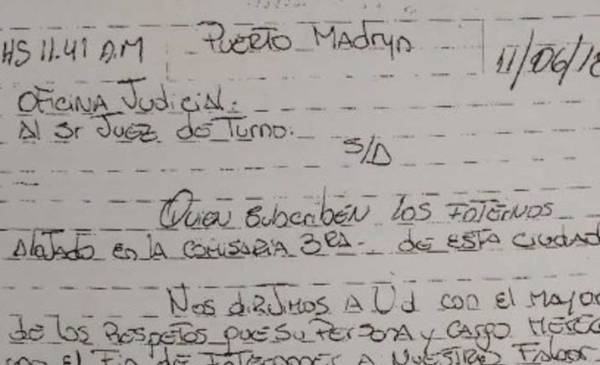 HS 11.41 A.M Puerto Madryn 11/06/18
Oficina Judicial.
Al Sr Juez de Turno.
S/D
Quien Subcriben los Internos
Alojado en la Comisaria 3ra. de esta ciudad
Nos dirijimos A Ud con el Mayor
de los Respetos que su Persona y Cargo Merece
con el Fin de Interponer A Nuestro Fabor